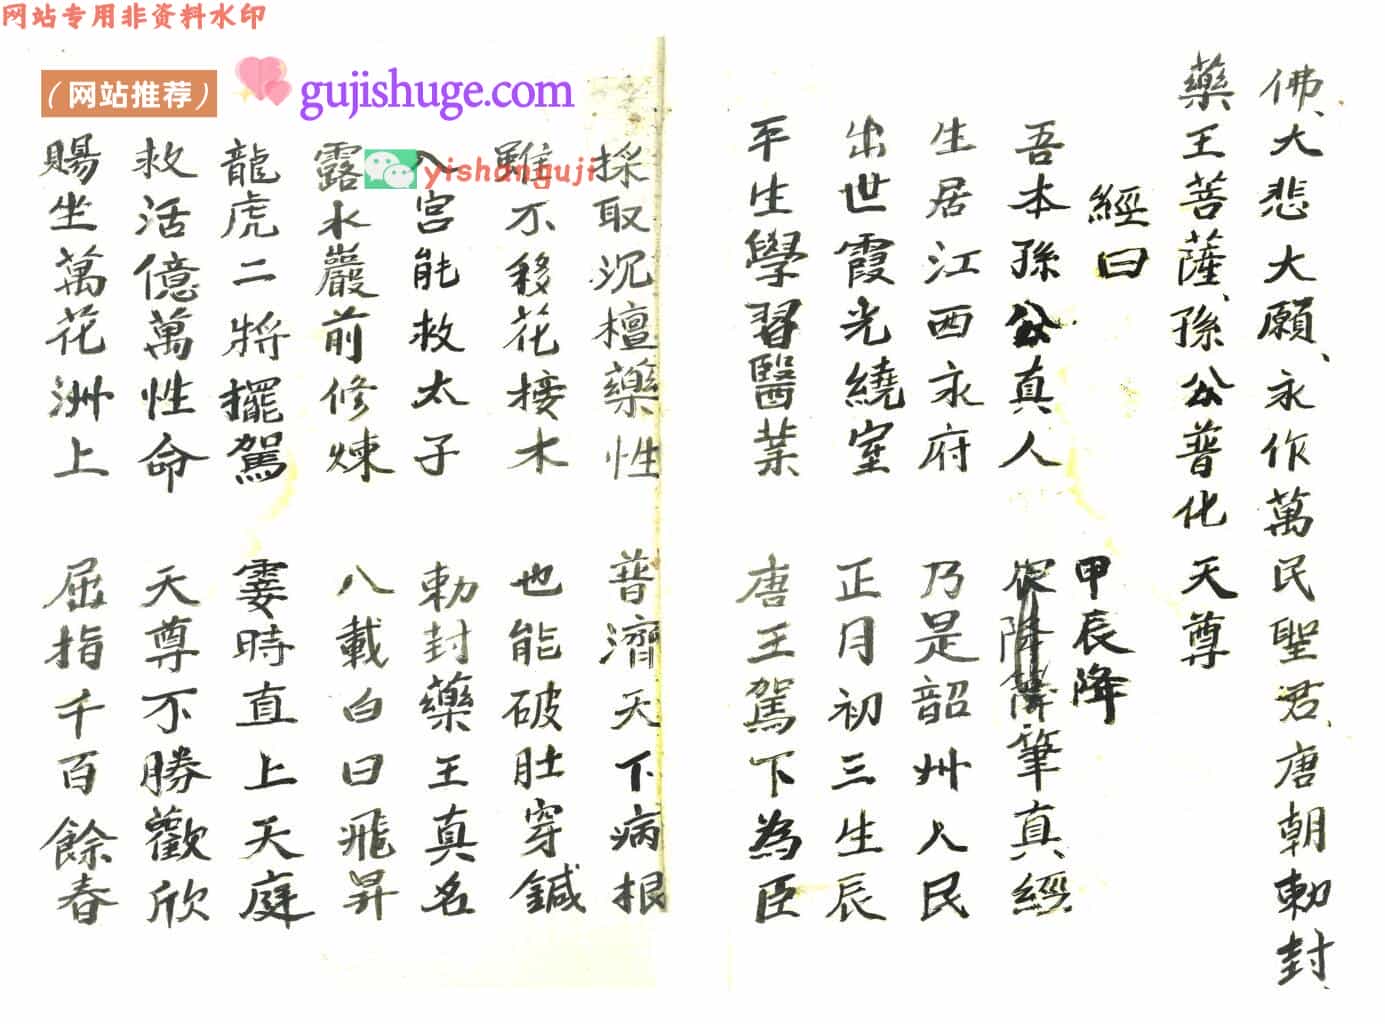 网站专用非资料水印
（网站推荐）
gujishuge.com
yishanguji
佛、大悲大願、永作萬民聖君、唐朝勅封、
藥王菩薩、孫公普化天尊
經曰　甲辰降
吾本孫公真人　降筆真經
生居江西永府　乃是韶州人民
出世霞光繞室　正月初三生辰
平生學習醫業　唐王駕下為臣
採取沉檀藥性　普濟天下病根
雖不移花接木　也能破肚穿鍼
入宮能救太子　勅封藥王真名
露水巖前修煉　八載白日飛昇
龍虎二將擺駕　霎時直上天庭
救活億萬性命　天尊不勝歡欣
賜坐萬花洲上　屈指千百餘春